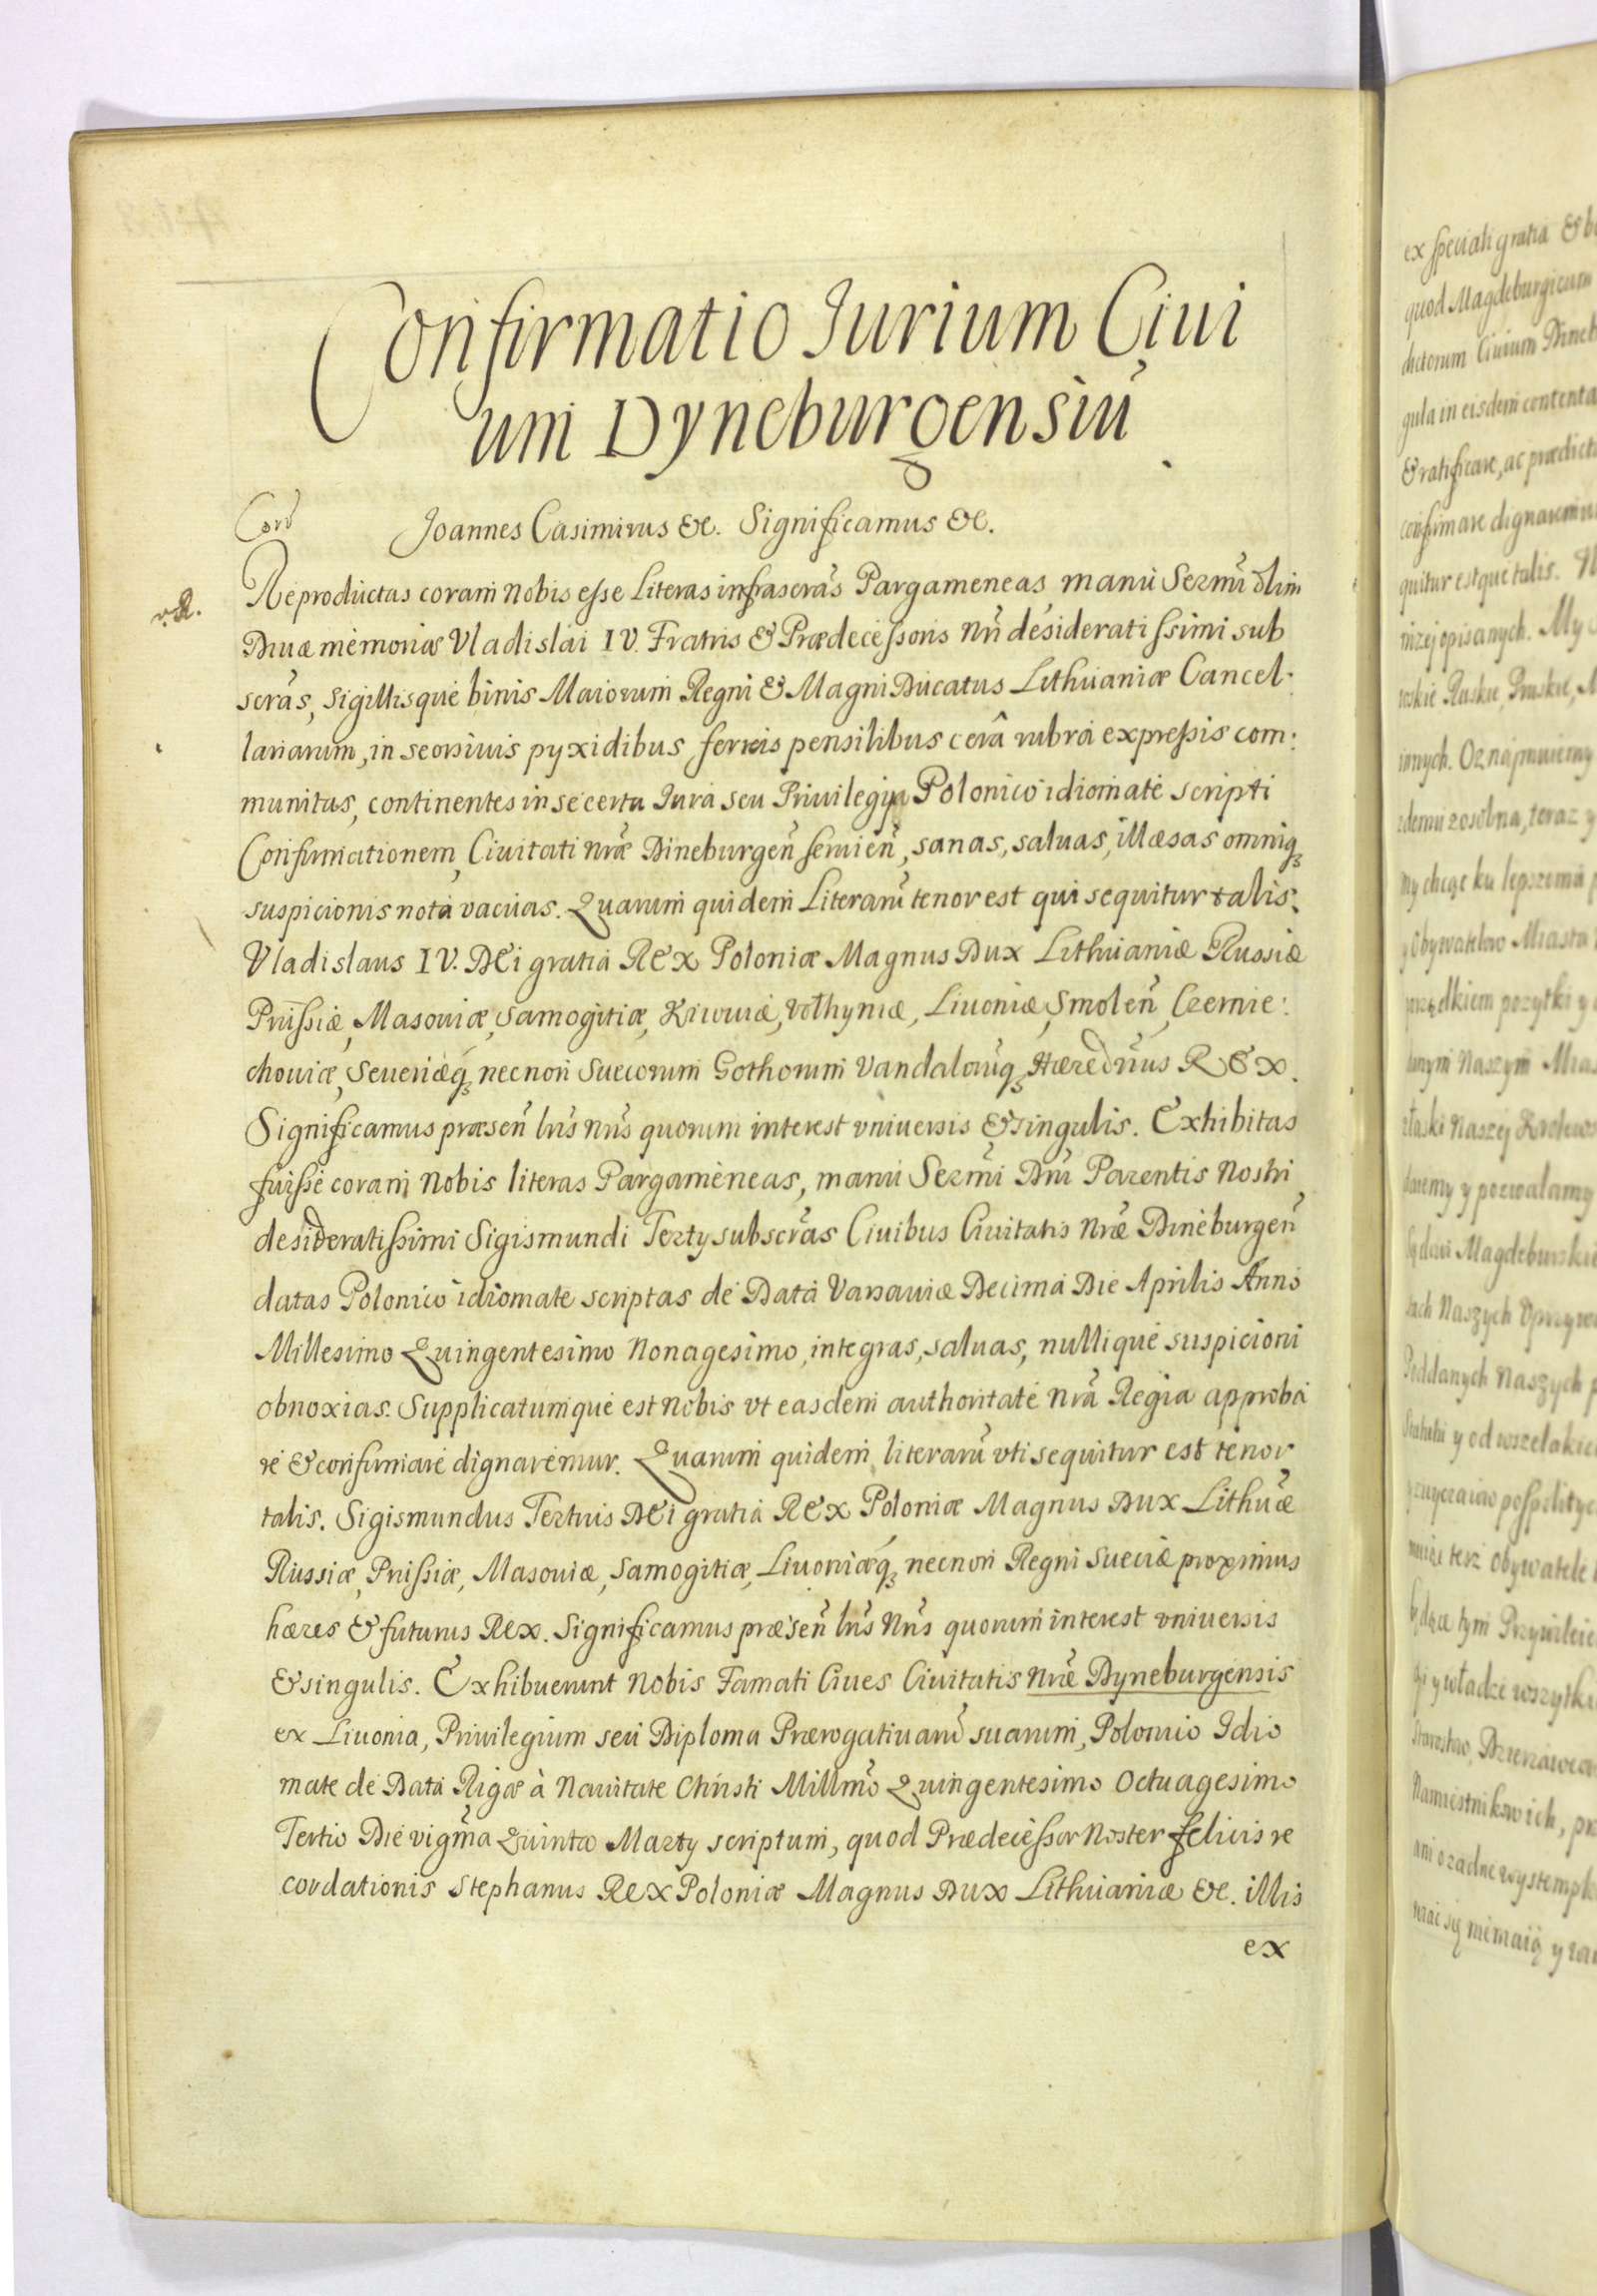 Confirmatio Jurium Ciui
um Dyneburgensiũ
Cord
Joannes Casimirus &c. Significamus &c.
Reproductas coram nobis esse Literas infrascrãs Pargameneas manu Serẽmi olim
Diuæ memoriæ Vladislai IV. Fratris & Prædecessoris Nrĩ desideratissimi sub
scrãs, sigillisque binis Maiorum Regni & Magni Ducatus Lithuaniæ Cancel:
lariarum, in seorsiuis pyxidibus ferreis pensilibus cerâ rubrâ expressis com:
munitas, continentes in se certa Jura seu Priuilegia Polonico idiomate scripti
Confirmationem, Ciuitati nræ Dineburgeñ seruieñ, sanas, saluas, illæsas omniq́
suspicionis notâ vacuas. Quarum quidem Literarũ tenor est qui sequitur talis:
Vladislaus IV. DEi gratiâ REX Poloniæ Magnus Dux Lithuaniæ Russiæ
Prussiæ, Masouiæ, Samogitiæ, Kiiouiæ, Volhyniæ, Liuoniæ, Smoleñ, Czernie:
chouiæ, Seueriæq́, necnon Suecorum Gothorum Vandalorũq́, Hæredrius REX.
Significamus præseñ lrĩs nrĩs quorum interest vniuersis & singulis. Exhibitas
fuisse coram Nobis literas Pargameneas, manu Serẽmi Dñi Parentis Nostri
desideratissimi Sigismundi Tertÿ subscrãs Ciuibus Ciuitatis Nræ Dineburgeñ
datas Polonico idiomate scriptas de Datâ Varsauiæ Decima Die Aprilis Anno
Millesimo Quingentesimo Nonagesimo, integras, saluas, nullique suspicioni
obnoxias. Supplicatumque est Nobis vt easdem authoritate Nrã Regia approba
re & confirmare dignaremur. Quarum quidem literarũ vti sequitur est tenor
talis. Sigismundus Tertius DEi gratiâ REX Poloniæ Magnus Dux Lithuæ
Russiæ, Prussiæ, Masouiæ, Samogitiæ, Liuoniæq́, necnon Regni Sueciæ proximus
hæres & futurus Rex. Significamus præseñ lrĩs Nrĩs quorum interest vniuersis
& singulis. Exhibuerunt Nobis Famati Ciues Ciuitatis Nræ Dyneburgensis
ex Liuonia, Priuilegium seu Diploma Prærogatiuarũ suarum, Polonico Idio
mate de Datâ Rigæ à Natiuitate Christi Millm̃o Quingentesimo Octuagesimo
Tertio Die vigm̃a Quinta Martÿ scriptum, quod Prædecessor Noster felicis re
cordationis Stephanus REX Poloniæ Magnus Dux Lithuaniæ &c. illis
ex
ex speciali gratia & b
quod Magdeburgicum
dictorum Ciuium Dineb
gula in eisdem contenta
& ratificare, ac prædict
confirmare dignaremu
quitur estque talis.
niżej opisanych. My
Ruskie, Pruskie,
innych. Oznajmuiemy
zosobna, teraz y
ny chcąc ku lepszemu
y Obywatelow Miasta
pożytki y
Naszym Mias
złaski Naszej Krolews
y pozwalamy
Magdeburskie
Naszych
Poddanych Naszych
y od wszelakie
pospolitych
też Obywatele
tym Przywileie
y władze wszytki
Namiestnikow ich, pr
się niemaią y